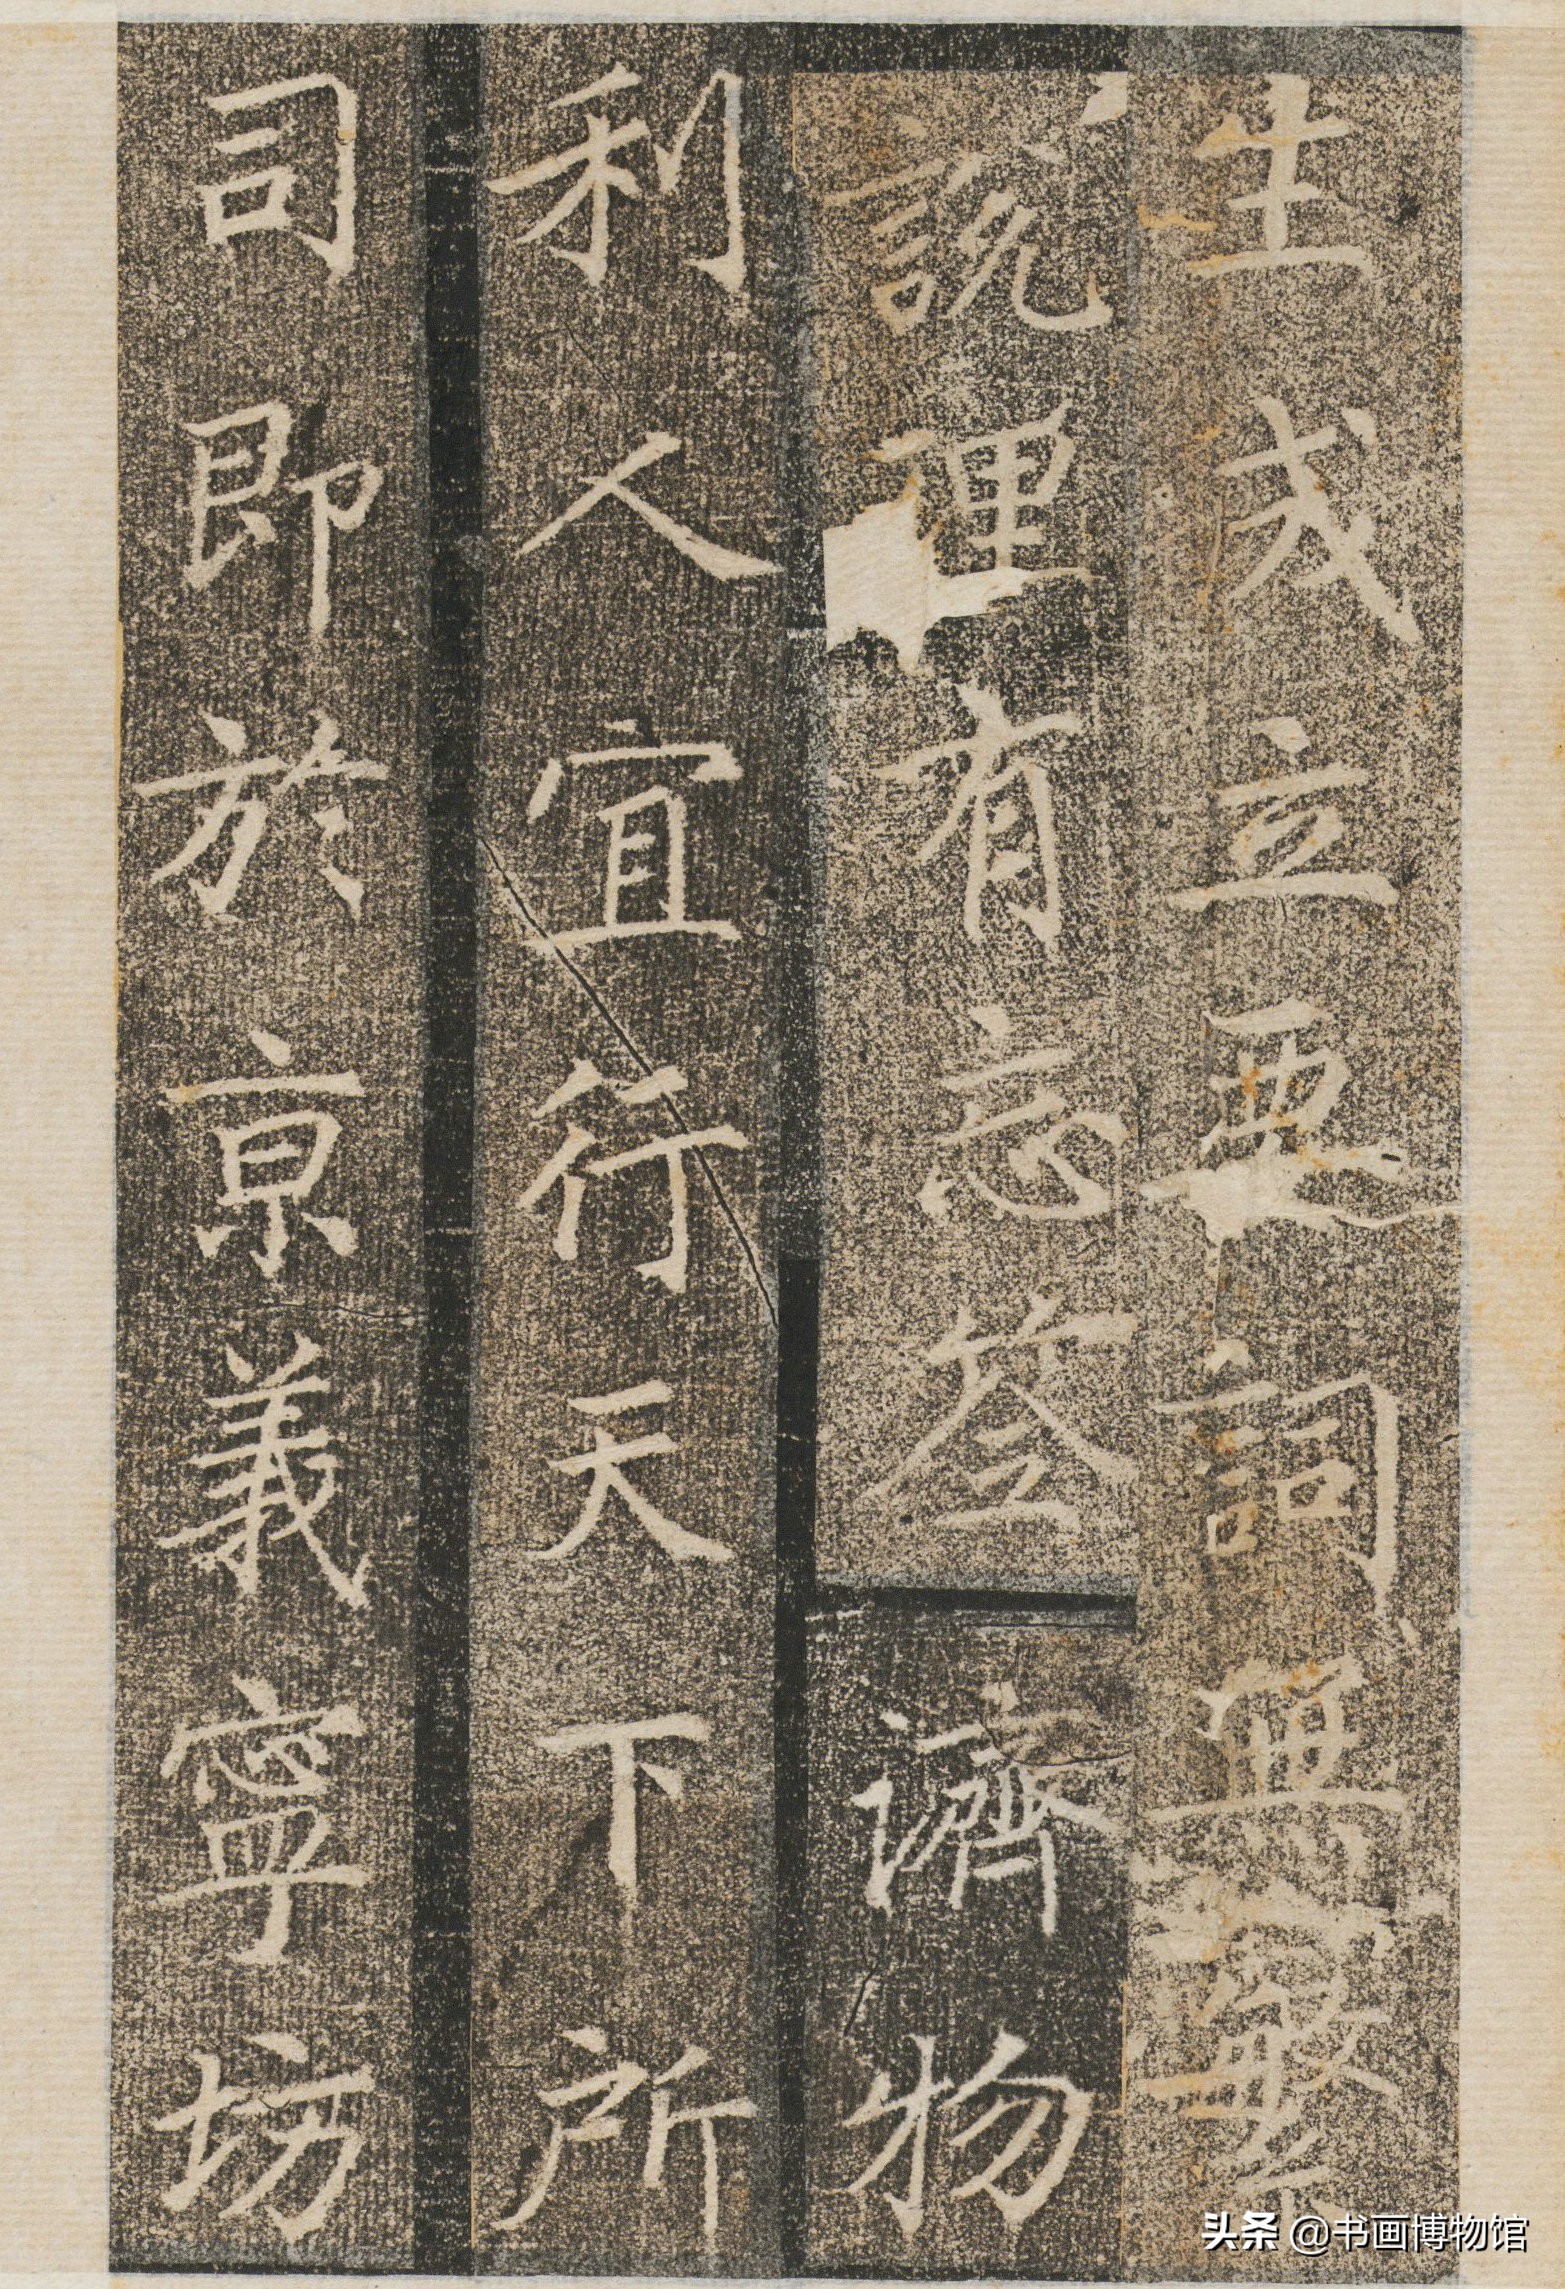 生成立要詞無繁
說理有忘筌濟物
利人宜行天下所
司即於京義寧坊
头条 @书画博物馆